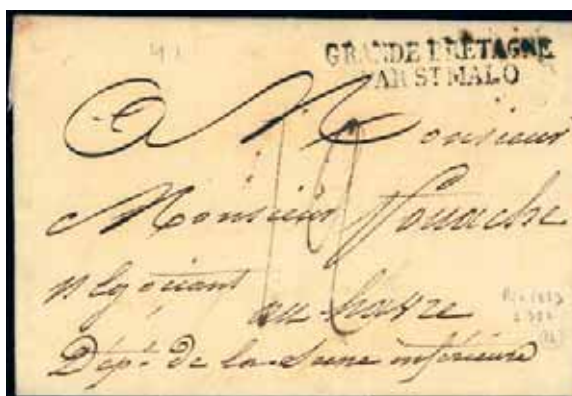 GRANDE BRETAGNE
PAR ST MALO
A Monsieur
Monsieur Fouache
négociant
au havre
Dépt. de la Seine inférieure